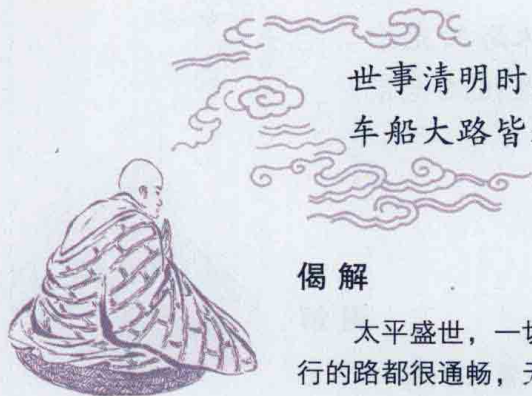 世事清明时
车船大路皆
偈解
太平盛世，一
行的路都很通畅，